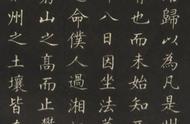 歸以為凡是州
有也而未始知
十八日因坐法
命僕人過湘江
窮山之高而止
州之土壤皆在